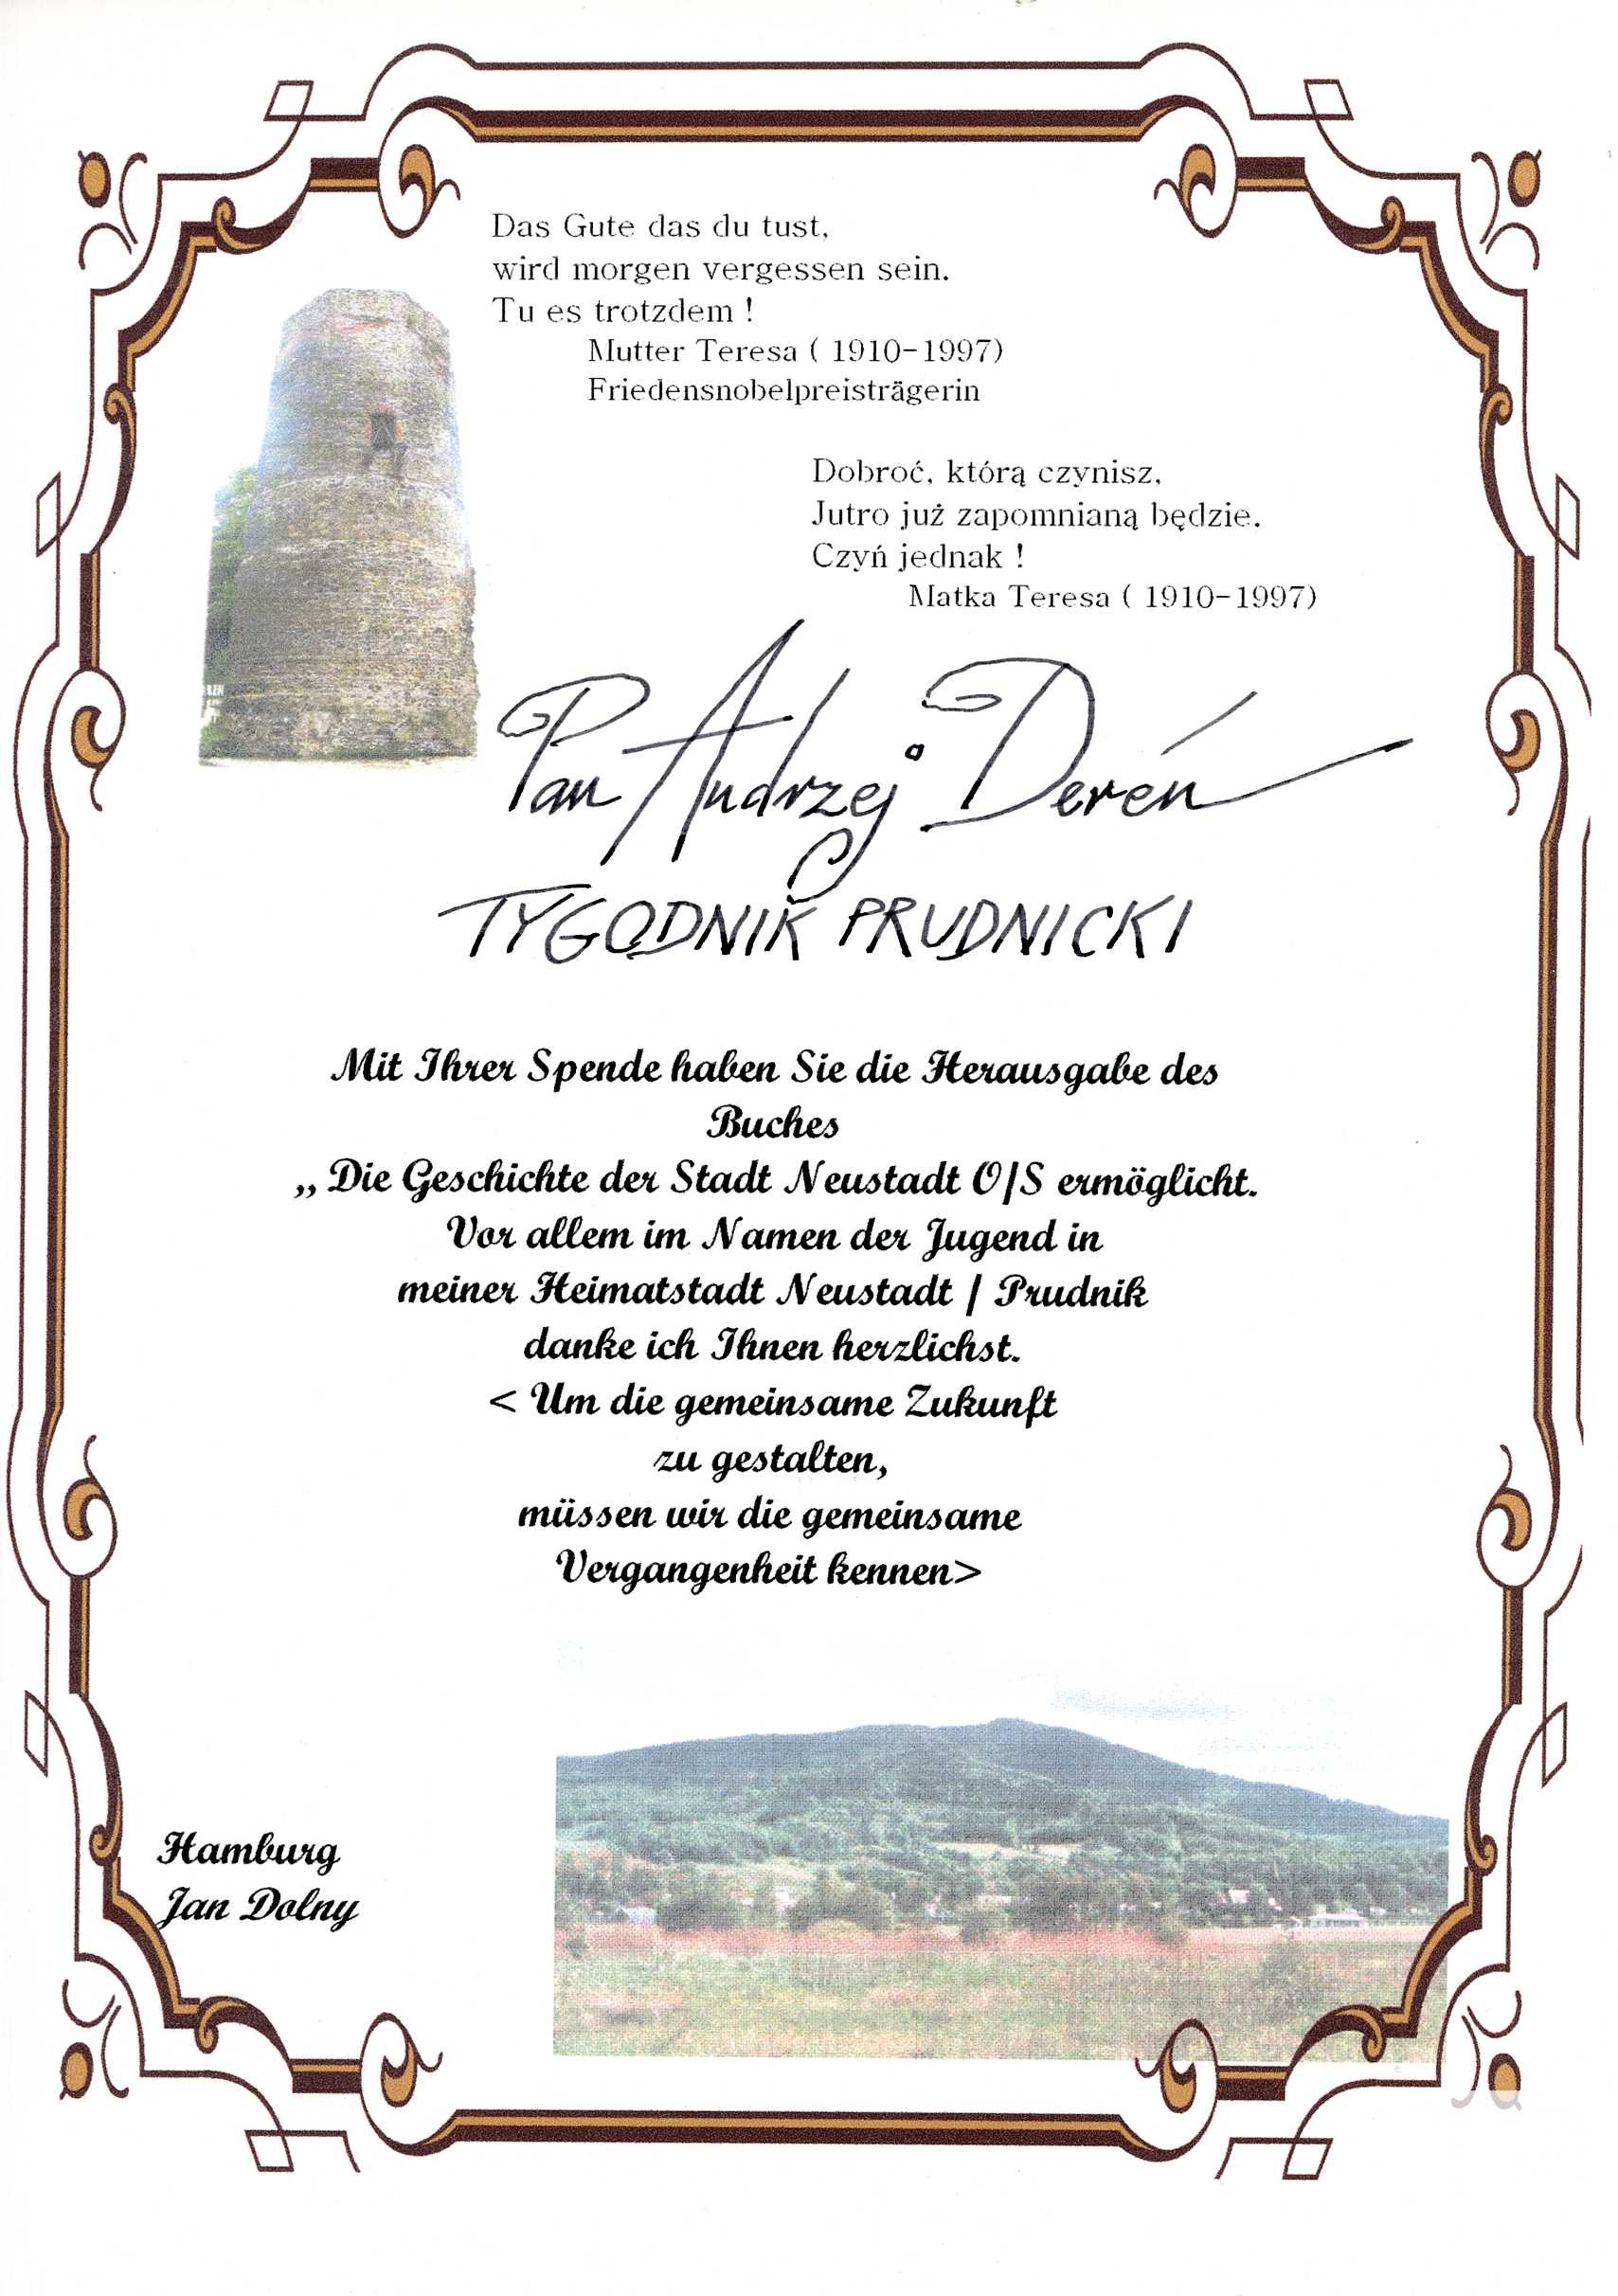 Das Gute das du tust,
wird morgen vergessen sein.
Tu es trotzdem !
Mutter Teresa ( 1910-1997)
Friedensnobelpreisträgerin
Dobroć, którą czynisz,
Jutro już zapomnianą będzie.
Czyń jednak !
Matka Teresa ( 1910-1997)
Pan Andrzej Dereń
TYGODNIK PRUDNICKI
Mit Ihrer Spende haben Sie die Herausgabe des
Buches
„Die Geschichte der Stadt Neustadt O/S ermöglicht.
Vor allem im Namen der Jugend in
meiner Heimatstadt Neustadt / Prudnik
danke ich Ihnen herzlichst.
< Um die gemeinsame Zukunft
zu gestalten,
müssen wir die gemeinsame
Vergangenheit kennen>
Hamburg
Jan Dolny